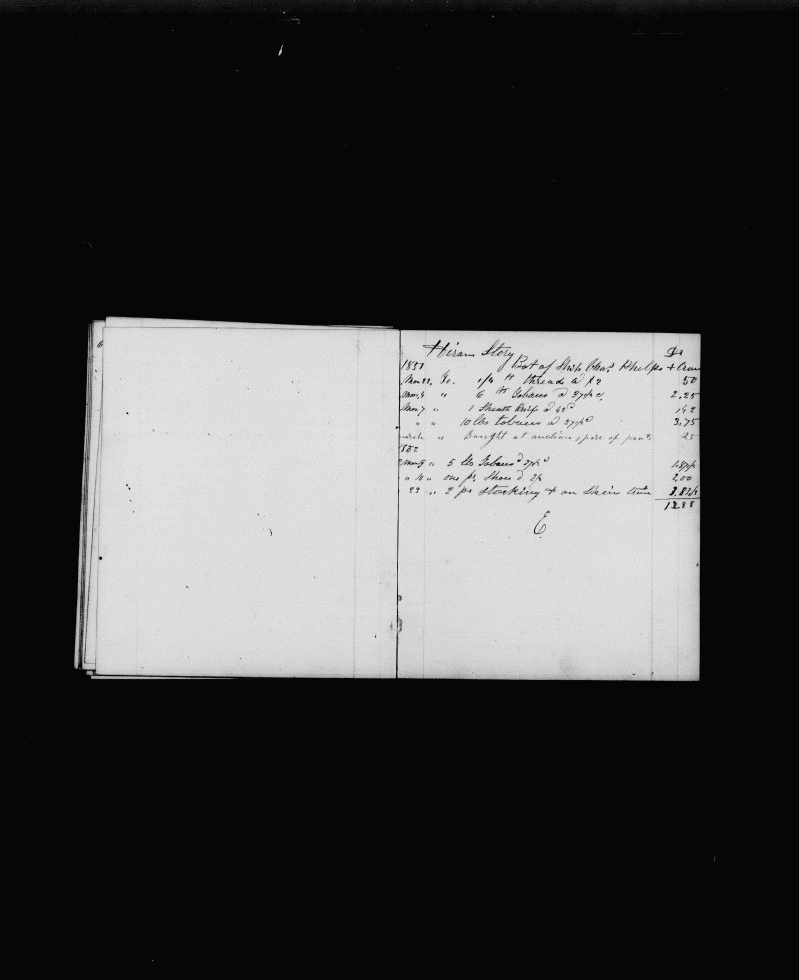 Hiram Story Dr
1851 Bot of Ship Chas Phelps + Own
Nov 22 To. 1/4 lb threads a
50
Nov 4 " 6 lb Tobacco a 37 1/2 c 2.25
Nov 7 " 1 Sheath Knif a 42
" " 10 lbs tobacco a 37 1/2 3.75
March " Bought at auction 1 pare of pants 25
1852
" 5 lbs Tobacco 37 1/2 1.87 1/2
" 10 " one pr Shoes 2/ 2.00
22 " 2 pr stocking + on Skein
12.88
E